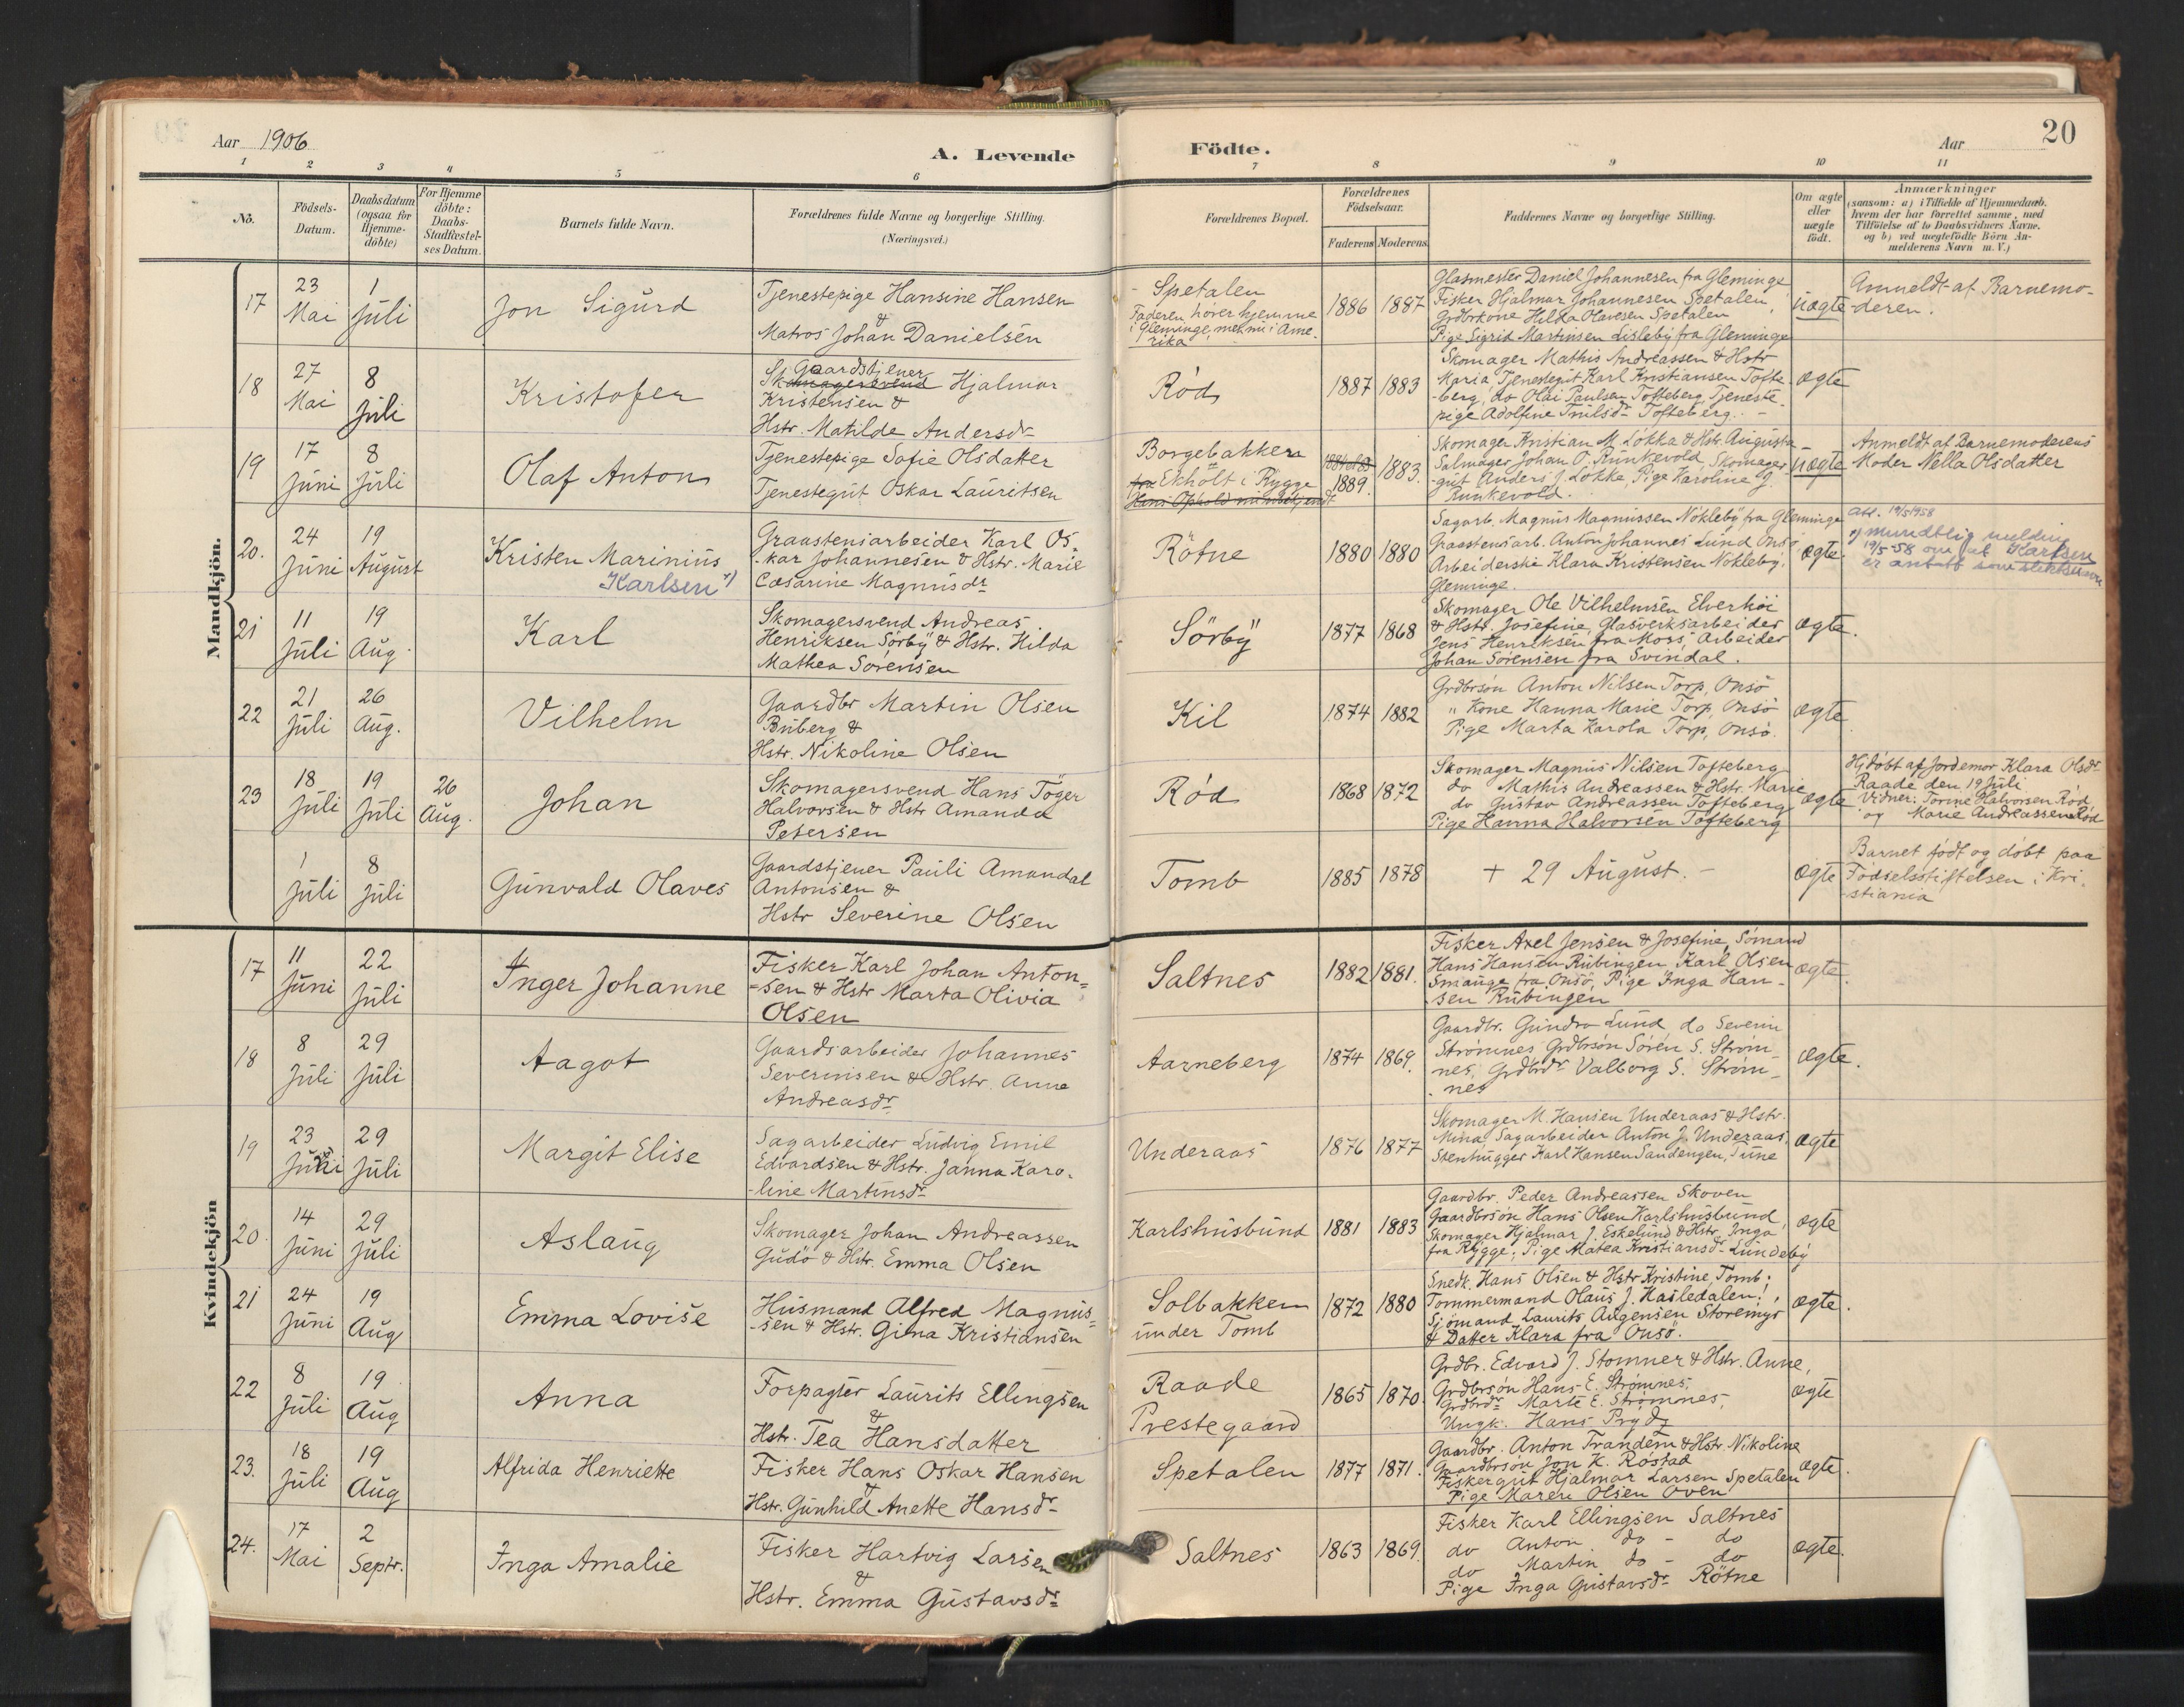 20
Aar 1906
A. Levende
Födte.
Aar
1 2 3 4 5 6 7 8 9 10 11
No.
Födsels-
Datum.
Daabsdatum
(ogsaa for
Hjemme-
döbte)
For Hjemme
döbte:
Daabs-
Stadfæstel-
ses Datum.
Barnets fulde Navn.
Forældrenes fulde Navne og borgerlige Stilling.
(Næringsvei.)
Forældrenes Bopæl.
Forældrenes
Födselsaar.
Faderens Moderens
Faddernes Navne og borgerlige Stilling.
Om ægte
eller
uægte
födt.
Anmærkninger
(saasom: a) i Tilfælde af Hjemmedaab.
hvem der har forrettet samme, med
Tilföielse af to Daabsvidners Navne.
og b) ved uægtefödte Börn An-
melderens Navn m. V.)
Mandkjön.
17
23
Mai
1
Juli
Jon Sigurd
Tjenestepige Hansine Hansen
&
Matros Johan Danielsen
Spetalen
Faderen hører hjemme
i Glemminge, men nu i Ame-
rika
1886 1887
Glasmester Daniel Johannesen fra Gleminge
Fisker Hjalmar Johannesen Spetalen
Grdbrkone Hilda Olavesen Spetalen
Pige Sigrid Martinsen Lisleby fra Gleminge
uægte
Anmeldt af Barnemo-
deren.
18
27
Mai
8
Juli
Kristofer
Gaardstjener
Skomagersvend Hjalmar
Kristensen &
Hstr. Matilde Andersdr
Rød
1887 1883
Skomager Mathis Andreassen & Hstr
Maria, Tjenestegut Karl Kristiansen Tofte-
berg, do Olai Paulsen Tofteberg, Tjeneste-
pige Adolfine Tofteberg. -
ægte
19
17
Juni
8
Juli
Olaf Anton
Tjenestepige Sofie Olsdatter
Tjenestegut Oskar Lauritsen
Borgebakken
fra Ekholt i Rygge
1889. 1883.
Skomager Kristian M. Løkka & Hstr. Augusta
Salmager Johan O. Runkevold, Skomager-
gut Anders J. Løkke, Pige Karoline J.
Runkevold.
uægte
Anmeldt af Barnemoderens
Moder Nella Olsdatter
20.
24
Juni
19
August
Kristen Marinius
Karlsen *)
Graastensarbeider Karl Os-
kar Johannesen & Hstr. Marie
Cæsarine Magnusdr
Rötne
1880 1880
Sagarb. Magnus Magnussen Nökleby fra Gleminge
Graastensarb. Anton Johannes Lund Onsö
Arbeiderske Klara Kristensen Nökleby,
Gleminge.
ægte.
Att. 19/5 1958
*) Mundtlig melding
19/5-58 om at Karlsen
er antatt som slektsnavn
21
11
Juli
19
Aug.
Karl
Skomagersvend Andreas
Henriksen Sørby & Hstr. Hilda
Mathea Sørensen
Sörby
1877 1868
Skomager Ole Vilhelmsen Elverhöi
& Hstr. Josefine, Glasverksarbeider
Jens Henriksen fra Moss, Arbeider
Johan Sörensen fra Svindal.
ægte.
22
21
Juli
26
Aug.
Vilhelm
Gaardbr Martin Olsen
Buberg &
Hstr. Nikoline Olsen
Kil
1874 1882
Grdbrsön Anton Nilsen Torp, Onsö
" Kone Hanna Marie Torp, Onsö
Pige Marta Karola Torp, Onsö.
ægte
23
18
Juli
19
Juli
26
Aug.
Johan
Skomagersvend Hans Töger
Halvorsen & Hstr Amanda
Petersen
Rød
1868 1872
Skomager Magnus Nilsen Tofteberg
do Mathis Andreassen & Hstr. Marie
do Gustav Andreassen Tofteberg
Pige Hanna Halvorsen Tofteberg
ægte
Hjdöbt af Jordemor Klara Olsdr
Raade den 19 Juli
Vidner: Torine Halvorsen Rød,
og Marie Andreassen Rød
1
Juli
8
Juli
Gunvald Olaves
Gaardstjener Pauli Amandal
Antonsen &
Hstr Severine Olsen
Tomb
1885 1878
+ 29 August. -
ægte
Barnet født og döbt paa
Födselsstiftelsen i Kri-
stiania
Kvindekjön
17
11
Juni
22
Juli
Inger Johanne
Fisker Karl Johan Anton-
sen & Hstr Marta Olivia
Olsen
Saltnes
1882 1881.
Fisker Axel Jensen & Josefine, Sömand
Hans Hansen Rubingen, Karl Olsen
Smauge fra Onsö, Pige Inga Han-
sen Rubingen
ægte.
18
8
Juli
29
Juli
Aagot
Gaardsarbeider Johannes
Severinsen & Hstr. Anne
Andreasdr
Aarneberg
1874 1869.
Gaardbr. Gundro Lund, do Severin
Strömnes, Grdbrsön Sören S. Ström-
nes, Grdbrdr Valborg S. Ström-
nes
ægte.
19
23
Juni
29
Juli
Margit Elise
Sagarbeider Ludvig Emil
Edvardsen & Hstr. Janna Karo-
line Martinsdr
Underaas
1876 1877
Skomager M. Hansen Underaas & Hstr.
Mina, Sagarbeider Anton J. Underaas,
Stenhugger Karl Hansen Sandengen, Tune
ægte
20
14
Juni
29
Juli
Aslaug
Skomager Johan Andreassen
Gudö & Hstr. Emma Olsen
Karlshusbund
1881 1883
Gaardbr. Peder Andreassen Skoven
Gaardbrsön Hans Olsen Karlshusbund,
Skomager Hjalmar J. Eskelund & Hstr. Inga
fra Rygge; Pige Matea Kristiansdr Lundeby
ægte
21
24
Juni
19
Aug
Emma Lovise
Husmand Alfred Magnus-
sen & Hstr. Gina Kristiansen
Solbakken
under Tomb
1872 1880
Snedk. Hans Olsen & Hstr Kristine, Tomb;
Tommermand Olaus J. Hasledalen;
Sjömand Laurits Augensen Storemyr
& Datter Klara fra Onsö.
ægte.
22
8
Juli
19
Aug
Anna
Forpagter Laurits Ellingsen
&
Hstr. Tea Hansdatter
Raade
Prestegaard
1865 1870.
Grdbr. Edvard J. Stomner & Hstr. Anne,
Grdbrsön Hans E. Strömnes,
Grdbrdr Marte E. Strömnes,
Ungk. Hans Prydz
ægte
23.
18
Juli
19
Aug
Alfrida Henriette
Fisker Hans Oskar Hansen
&
Hstr. Gunhild Anette Hansdr
Spetalen
1877 1871.
Gaardbr. Anton Trandem & Hstr. Nikoline
Gaardbrsön Jon K. Röstad
Fiskergut Hjalmar Larsen Spetalen
Pige Maren Olsen Oven
ægte.
24.
17
Mai
2
Septr.
Inga Amalie
Fisker Hartvig Larsen
&
Hstr. Emma Gustavsdr
Saltnes
1863 1869.
Fisker Karl Ellingsen Saltnes
do Anton do - do
do Martin do - do
Pige Inga Gustavsdr Rötne
ægte.